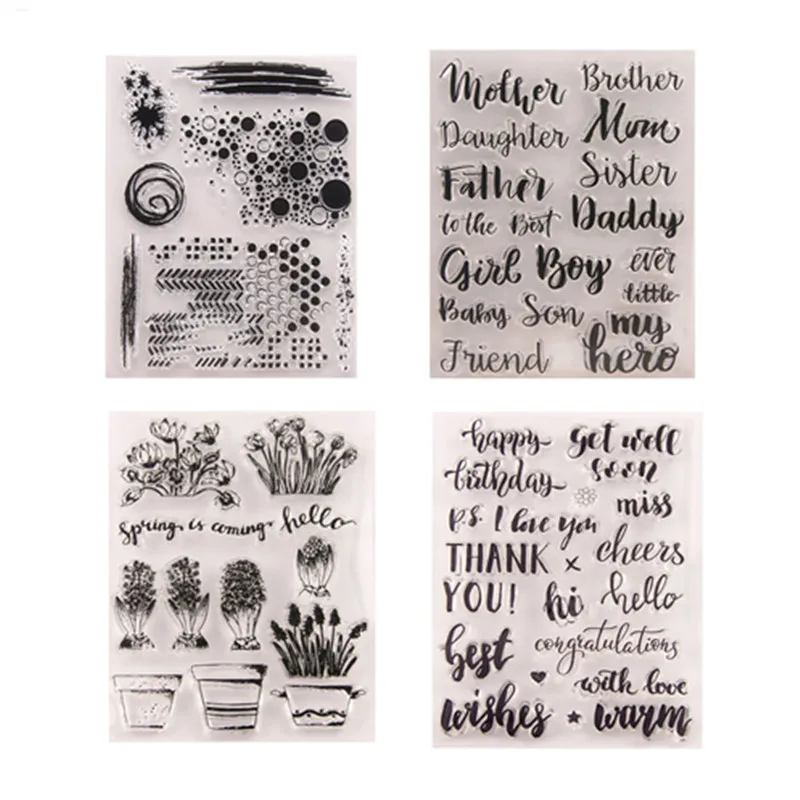 Mother Brother
Daughter Mom
Father Sister
to the Best Daddy
Girl Boy ever
Baby Son little
my
Friend hero
Spring is coming hello
happy get well
birthday soon
miss
P.S. I love you
THANK x cheers
YOU! hi hello
best congratulations
with love
wishes warm